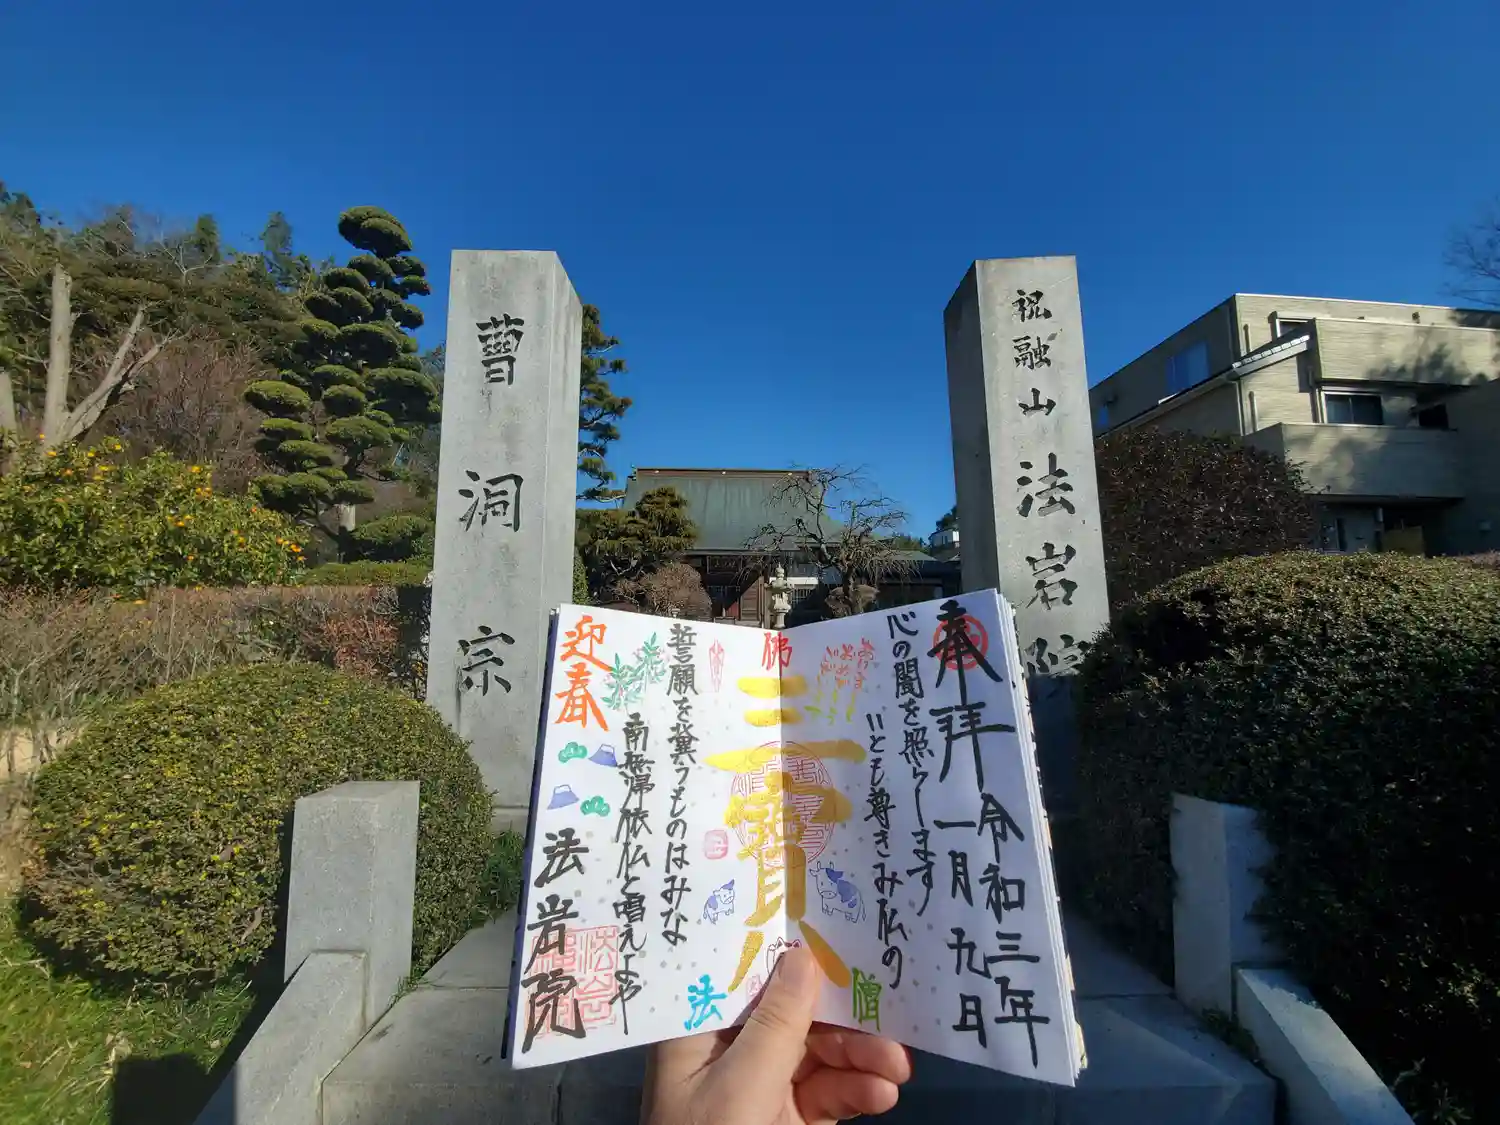 曹洞宗
祝融山
法岩院
奉拝
令和三年
一月九日
心の闇を照らします
いとも尊きみ仏の
佛
三寳
法
僧
誓願を冀うものはみな
南無帰依仏と唱えよや
迎春
法岩院